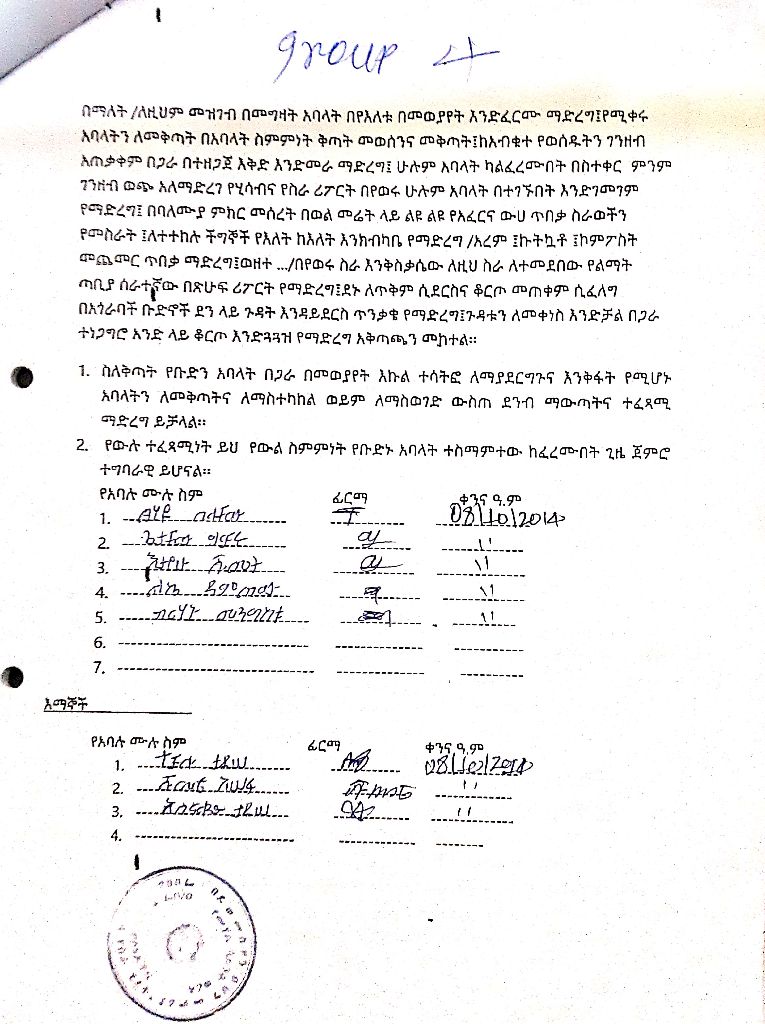 group 4
በማለት /ለዚህም መዝገብ በመግዛት አባላት በየእለቱ በመወያየት እንድፈርሙ ማድረግ፤የሚቀሩ
አባላትን ለመቅጣት በአባላት ስምምነት ቅጣት መወሰንና መቅጣት፤ከአብቁተ የወሰዱትን ገንዘብ
አጠቃቀም በጋራ በተዘጋጀ እቅድ እንድመራ ማድረግ፤ ሁሉም አባላት ካልፈረሙበት በስተቀር ምንም
ገንዘብ ወጭ አለማድረግ የሂሳብና የስራ ሪፖርት በየወሩ ሁሉም አባላት በተገኙበት እንድገመገም
የማድረግ፤ በባለሙያ ምክር መሰረት በወል መሬት ላይ ልዩ ልዩ የአፈርና ውሀ ጥበቃ ስራወችን
የመስራት ፤ለተተከሉ ችግኞች የእለት ከእለት እንክብካቤ የማድረግ /አረም ፤ኩትኳቶ ፤ኮምፖስት
መጨመር ጥበቃ ማድረግ፤ወዘተ .../በየወሩ ስራ እንቅስቃሴው ለዚህ ስራ ለተመደበው የልማት
ጣቢያ ሰራተኛው በጽሁፍ ሪፖርት የማድረግ፤ደኑ ለጥቅም ሲደርስና ቆርጦ መጠቀም ሲፈለግ
በአጎራባች ቡድኖች ደን ላይ ጉዳት እንዳይደርስ ጥንቃቄ የማድረግ፤ጉዳቱን ለመቀነስ እንድቻል በጋራ
ተነጋግሮ አንድ ላይ ቆርጦ እንድጓጓዝ የማድረግ አቅጣጫን መከተል፡፡
1. ስለቅጣት የቡድን አባላት በጋራ በመወያየት እኩል ተሳትፎ ለማያደርጉና እንቅፋት የሚሆኑ
አባላትን ለመቅጣትና ለማስተካከል ወይም ለማስወገድ ውስጠ ደንብ ማውጣትና ተፈጻሚ
ማድረግ ይቻላል፡፡
2. የውሉ ተፈጻሚነት ይህ የውል ስምምነት የቡድኑ አባላት ተስማምተው ከፈረሙበት ጊዜ ጀምሮ
ተግባራዊ ይሆናል፡፡
የአባሉ ሙሉ ስም ፊርማ ቀንና ዓ.ም
1. 08/10/2014
2. 11
3. 11
4. 11
5. 11
6.
7.
እማኞች
የአባሉ ሙሉ ስም ፊርማ ቀንና ዓ.ም
1. 08/10/2014
2. 11
3. 11
4.